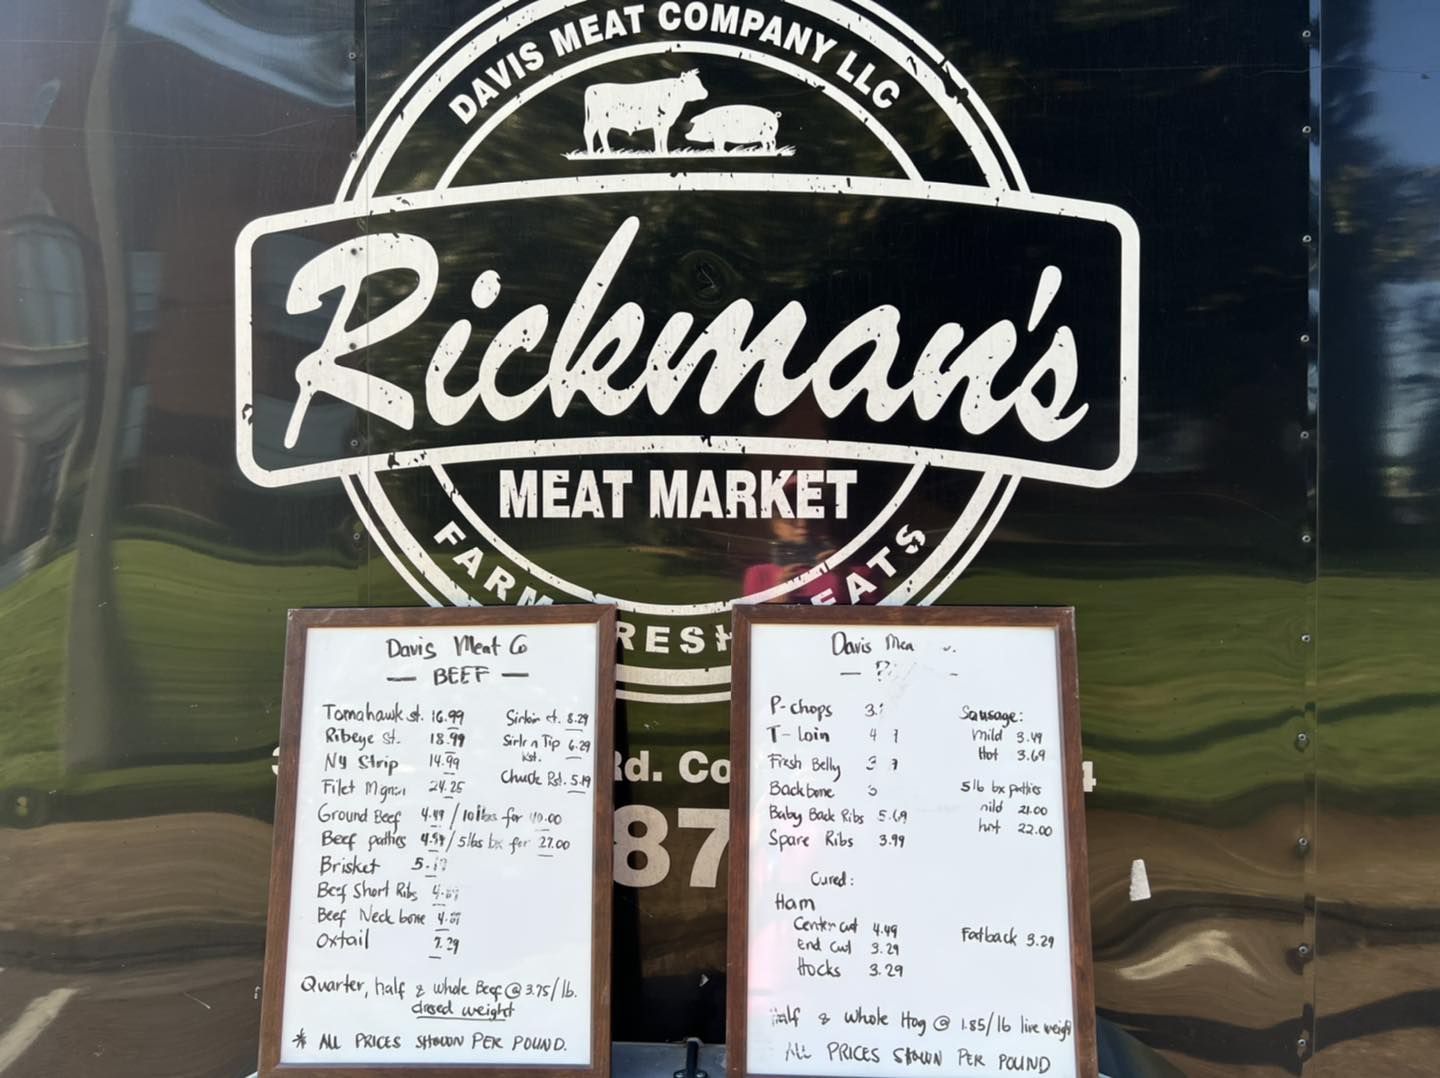 DAVIS MEAT COMPANY LLC
Rickman's
MEAT MARKET
FARM RESH EATS
Rd. Co
87
Davis Meat Co
— BEEF —
Tomahawk st. 16.99
Ribeye st. 18.99
NY Strip 14.99
Filet Mignon 24.25
Ground Beef 4.49 / 10 lbs for 40.00
Beef patties / 5lbs bx for 27.00
Brisket
Beef Short Ribs
Beef Neck bone
Oxtail 7.29
Sirloin st. 8.29
Sirloin Tip 6.29
Rst.
Chuck Rst. 5.19
Quarter, half & whole Beef @ 3.75/lb.
dressed weight
* ALL PRICES SHOWN PER POUND.
Davis Mea
P-chops
T-Loin
Fresh Belly
Backbone
Baby Back Ribs 5.69
Spare Ribs 3.99
Sausage:
Mild 3.49
Hot 3.69
5lb bx patties
mild 21.00
hot 22.00
Cured:
Ham
Center cut 4.49
End Cut 3.29
Hocks 3.29
Fatback 3.29
Half & whole Hog @ 1.85/lb live weight
ALL PRICES SHOWN PER POUND